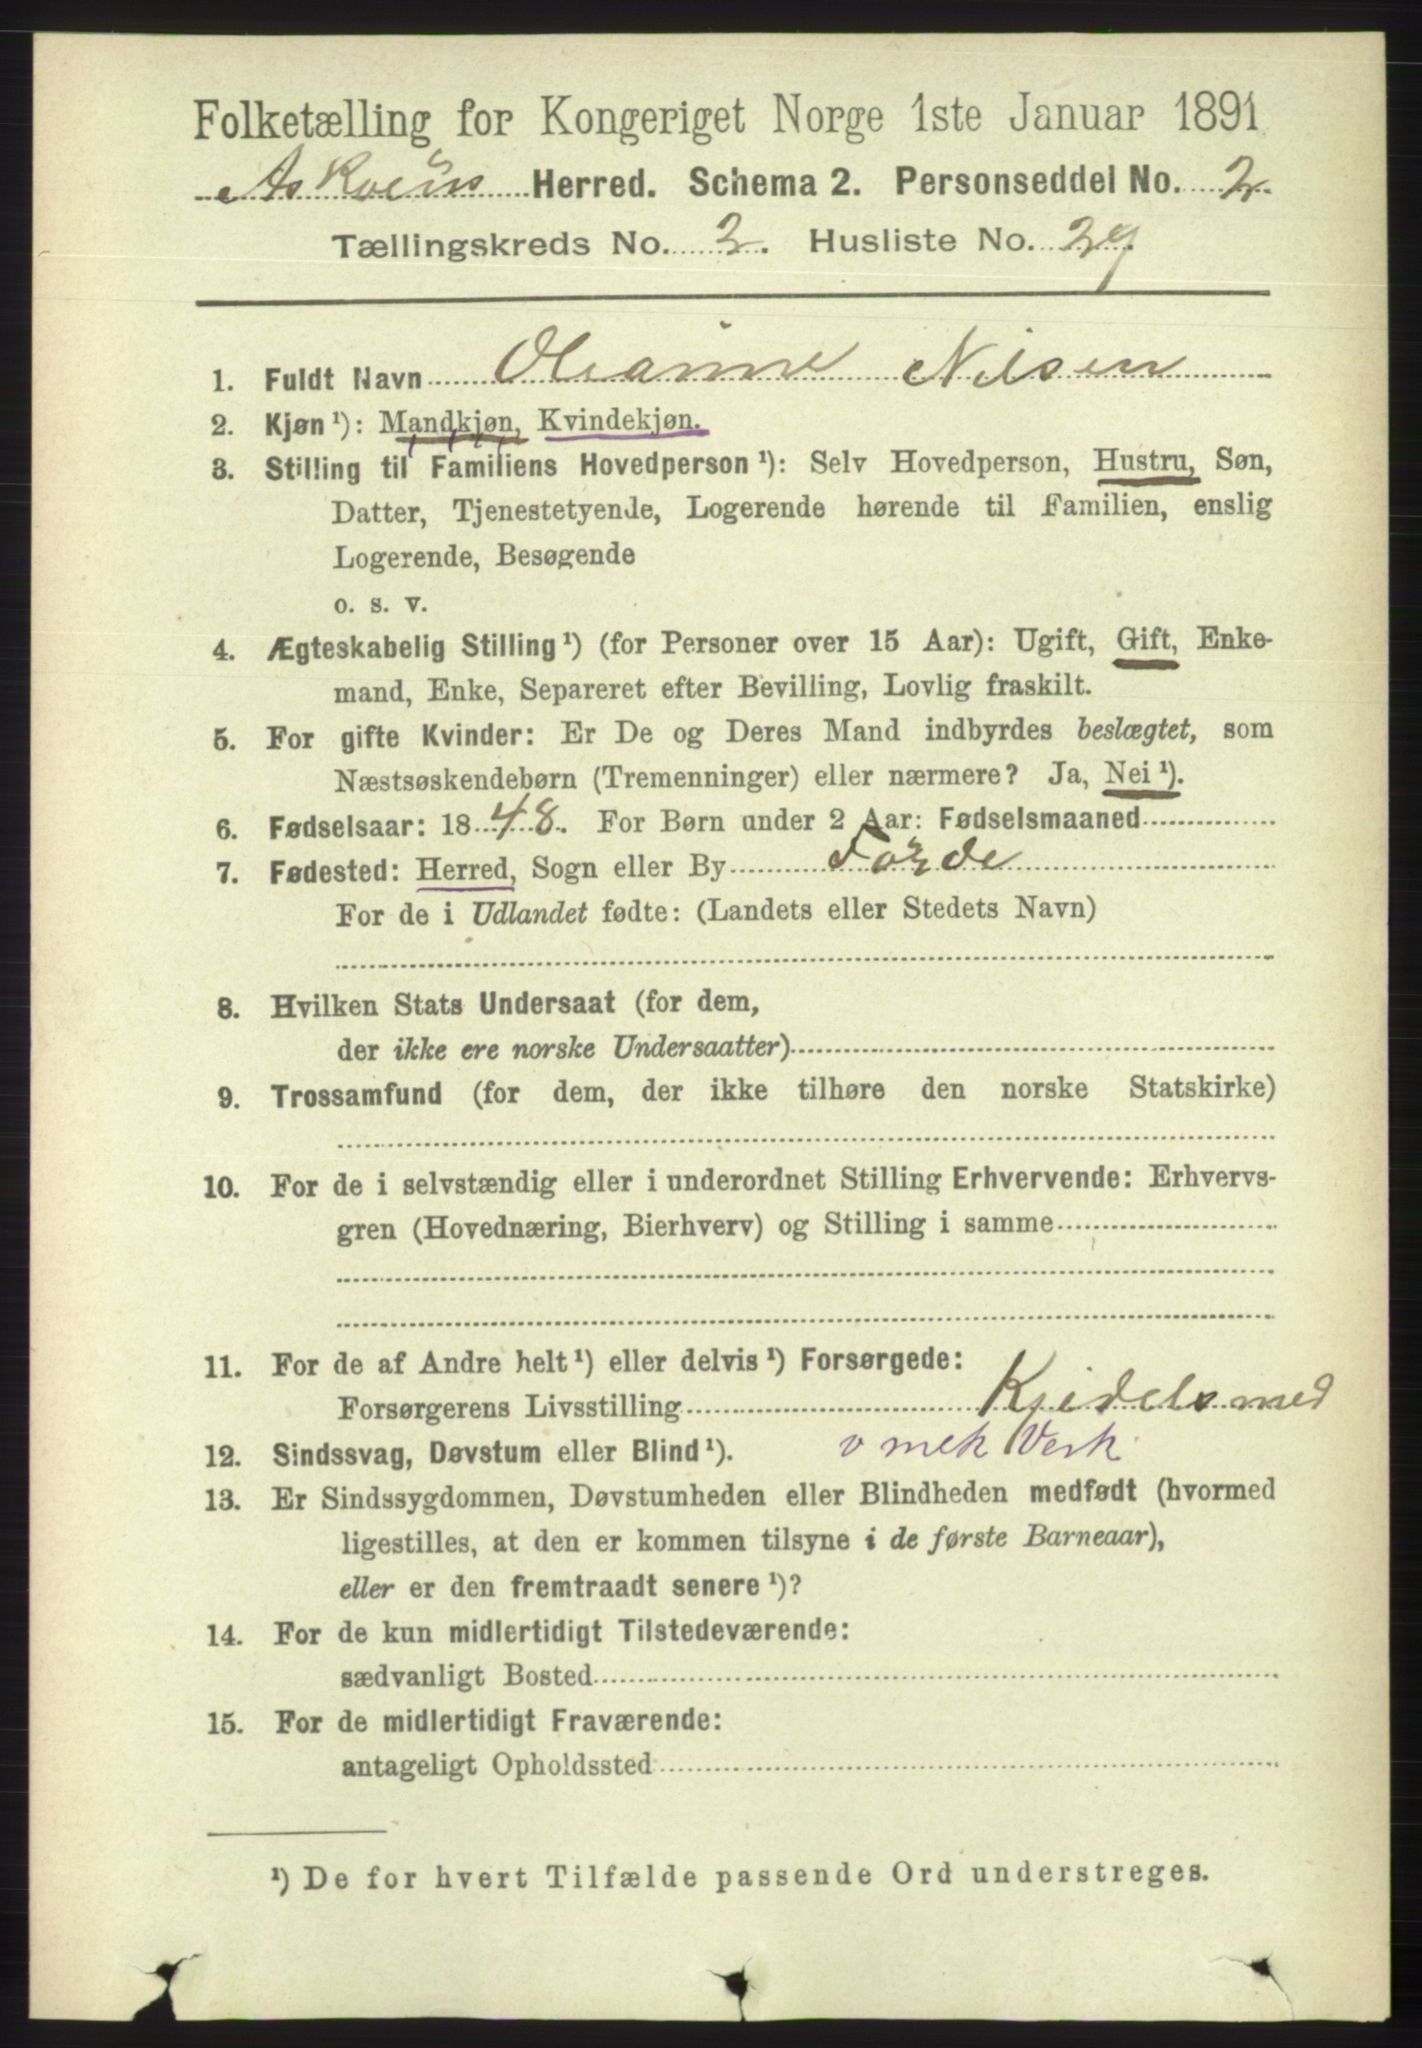 Folketælling for Kongeriget Norge 1ste Januar 1891
Askvolds Herred. Schema 2. Personseddel No. 2.
Tællingskreds No. 2. Husliste No. 29.
1. Fuldt Navn Oleanne Nilsen
2. Kjøn ¹): Mandkjøn, Kvindekjøn.
3. Stilling til Familiens Hovedperson ¹): Selv Hovedperson, Hustru, Søn,
Datter, Tjenestetyende, Logerende hørende til Familien, enslig
Logerende, Besøgende
o. s. v.
4. Ægteskabelig Stilling ¹) (for Personer over 15 Aar): Ugift, Gift, Enke-
mand, Enke, Separeret efter Bevilling, Lovlig fraskilt.
5. For gifte Kvinder: Er De og Deres Mand indbyrdes beslægtet, som
Næstsøskendebørn (Tremenninger) eller nærmere? Ja, Nei ¹).
6. Fødselsaar: 1848. For Børn under 2 Aar: Fødselsmaaned
7. Fødested: Herred, Sogn eller By Förde
For de i Udlandet fødte: (Landets eller Stedets Navn)
8. Hvilken Stats Undersaat (for dem,
der ikke ere norske Undersaatter)
9. Trossamfund (for dem, der ikke tilhøre den norske Statskirke)
10. For de i selvstændig eller i underordnet Stilling Erhvervende: Erhvervs-
gren (Hovednæring, Bierhverv) og Stilling i samme
11. For de af Andre helt ¹) eller delvis ¹) Forsørgede:
Forsørgerens Livsstilling Kjedelsmed
v mek Verk
12. Sindssvag, Døvstum eller Blind ¹).
13. Er Sindssygdommen, Døvstumheden eller Blindheden medfødt (hvormed
ligestilles, at den er kommen tilsyne i de første Barneaar),
eller er den fremtraadt senere ¹)?
14. For de kun midlertidigt Tilstedeværende:
sædvanligt Bosted
15. For de midlertidigt Fraværende:
antageligt Opholdssted
¹) De for hvert Tilfælde passende Ord understreges.